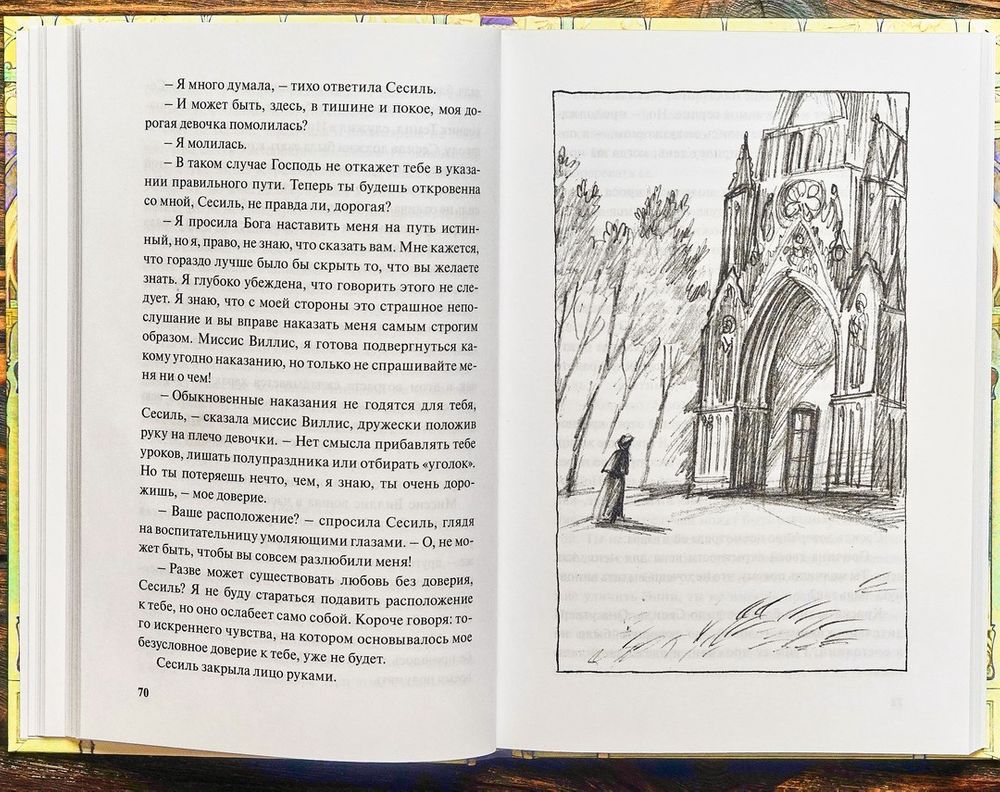 – Я много думала, – тихо ответила Сесиль.
– И может быть, здесь, в тишине и покое, моя до-
рогая девочка помолилась?
– Я молилась.
– В таком случае Господь не откажет тебе в указа-
нии правильного пути. Теперь ты будешь откровенна
со мной, Сесиль, не правда ли, дорогая?
– Я просила Бога наставить меня на путь истин-
ный, но я, право, не знаю, что сказать вам. Мне кажется,
что гораздо лучше было бы скрыть то, что вы желаете
знать. Я глубоко убеждена, что говорить этого не сле-
дует. Я знаю, что с моей стороны это страшное непо-
слушание и вы вправе наказать меня самым строгим
образом. Миссис Виллис, я готова подвергнуться ка-
кому угодно наказанию, но только не спрашивайте ме-
ня ни о чем!
– Обыкновенные наказания не годятся для тебя,
Сесиль, – сказала миссис Виллис, дружески положив
руку на плечо девочки. – Нет смысла прибавлять тебе
уроков, лишать полупраздника или отбирать «уголок».
Но ты потеряешь нечто, чем, я знаю, ты очень доро-
жишь, – мое доверие.
– Ваше расположение? – спросила Сесиль, глядя
на воспитательницу умоляющими глазами. – О, не мо-
жет быть, чтобы вы совсем разлюбили меня!
– Разве может существовать любовь без доверия,
Сесиль? Я не буду стараться подавить расположение
к тебе, но оно ослабеет само собой. Короче говоря: то-
го искреннего чувства, на котором основывалось мое
безусловное доверие к тебе, уже не будет.
Сесиль закрыла лицо руками.
70